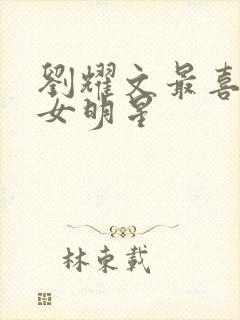 劉耀文最喜
女明星
林東載